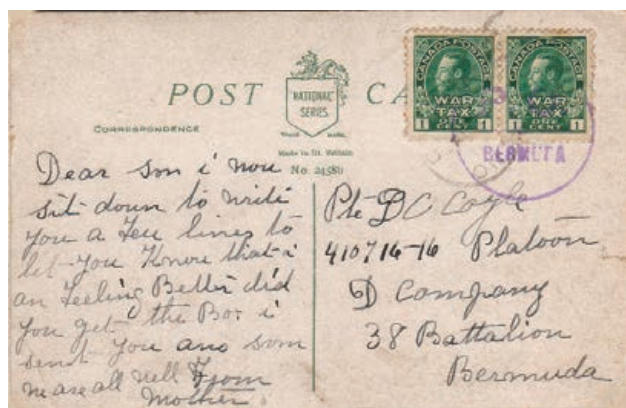 POST CA
NATIONAL
SERIES
CORRESPONDENCE
Made in Gt. Britain
No. 24580
CANADA POSTAGE
WAR
TAX
1 ONE 1
CENT
CANADA POSTAGE
WAR
TAX
1 ONE 1
CENT
BERMUTA
Dear Son i now
sit down to write
you a few lines to
let you know that i
an feeling Better did
you get the Box i
sent you ans som
we are all well From
Mother
Pte D C Coyle
410716-16 Platoon
D Company
38 Battalion
Bermuda